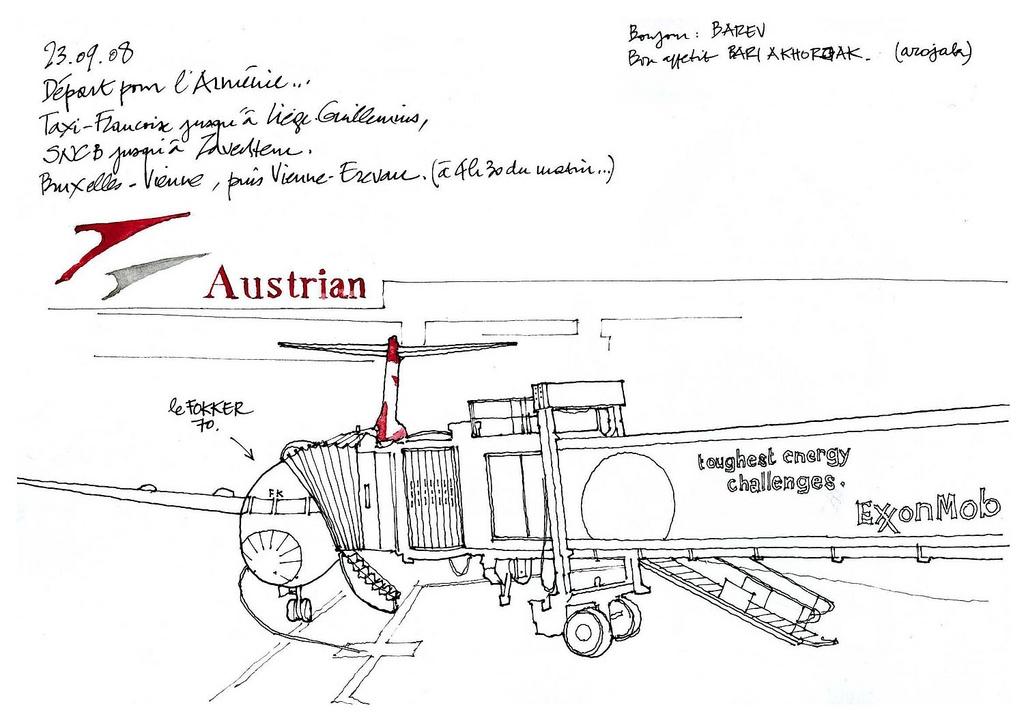 23.09.08
Départ pour l'Arménie...
Taxi-Françoise jusqu'à Liège-Guillemins,
SNCB jusqu'à Zaventem.
Bruxelles-Vienne, puis Vienne-Erevan. (à 4h30 du matin...)
Bonjour: BAREV
Bon appetit BARI AKHORJAK. (arojak)
Austrian
le FOKKER
70.
FK
toughest energy
challenges.
ExxonMob